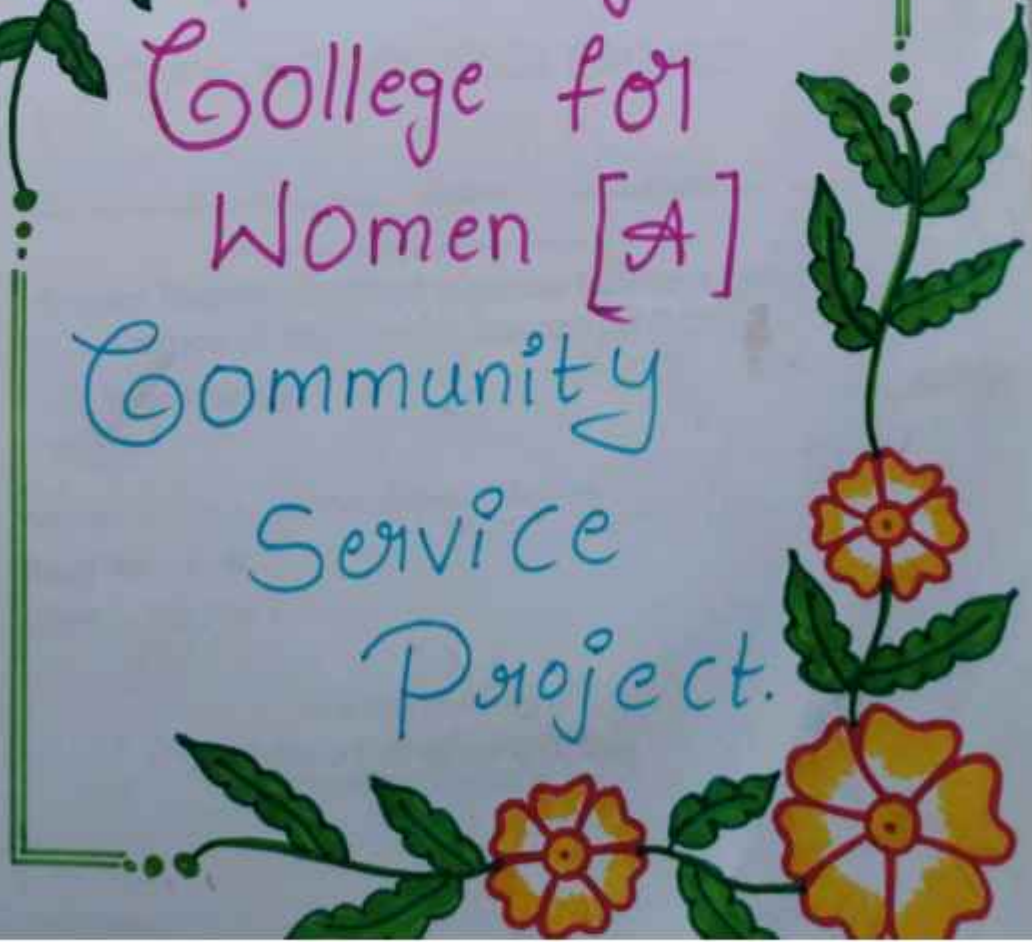 College for
Women [A]
Community
Service
Project.